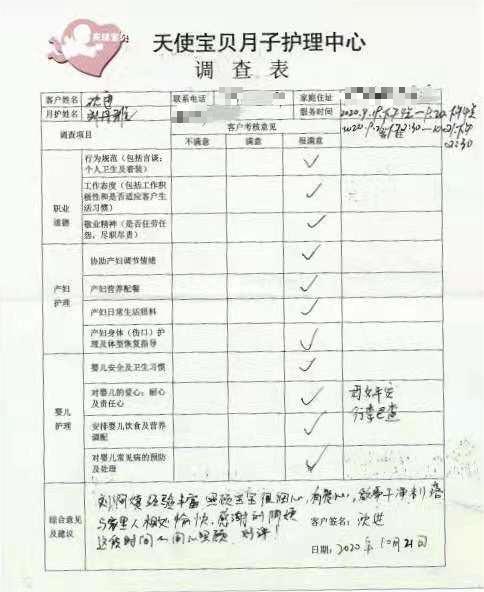 天使宝贝
天使宝贝月子护理中心
调查表
客户姓名 联系电话 家庭住址
月护姓名 服务时间
调查项目 客户考核意见
不满意 满意 很满意
职业道德
行为规范（包括言谈；个人卫生及着装） ✓
工作态度（包括工作积极性和是否适应客户生活习惯） ✓
敬业精神（是否任劳任怨，尽职尽责） ✓
产妇护理
协助产妇调节情绪 ✓
产妇营养配餐 ✓
产妇日常生活照料 ✓
产妇身体（伤口）护理及体型恢复指导 ✓
婴儿护理
婴儿安全及卫生习惯 ✓
对婴儿的爱心；耐心及责任心 ✓
安排婴儿饮食及营养调配 ✓
对婴儿常见病的预防及处理 ✓
行李已查
综合意见及建议
刘阿姨经验丰富 照顾宝宝很细心，有爱心，做事干净利落
与家里人相处愉快，感谢刘阿姨
这段时间 照顾，好评！
客户签名：沈进
日期：2020年10月21日